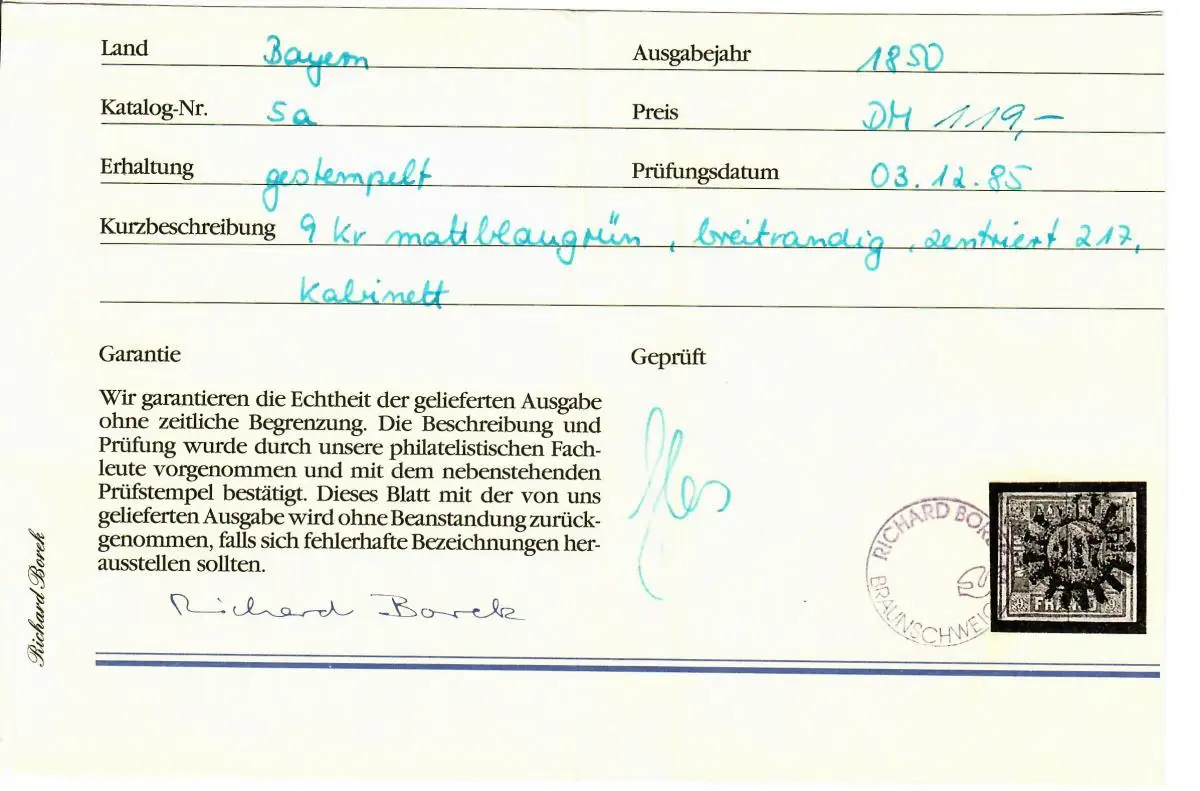 Land Bayern Ausgabejahr 1850
Katalog-Nr. 5a Preis DM 119,–
Erhaltung gestempelt Prüfungsdatum 03.12.85
Kurzbeschreibung 9 Kr mattblaugrün, breitrandig, zentriert 217,
Kabinett
Garantie
Wir garantieren die Echtheit der gelieferten Ausgabe
ohne zeitliche Begrenzung. Die Beschreibung und
Prüfung wurde durch unsere philatelistischen Fach-
leute vorgenommen und mit dem nebenstehenden
Prüfstempel bestätigt. Dieses Blatt mit der von uns
gelieferten Ausgabe wird ohne Beanstandung zurück-
genommen, falls sich fehlerhafte Bezeichnungen her-
ausstellen sollten.
Richard Borek
Geprüft
RICHARD BORE
BRAUNSCHWEIG
217
FRANCO
Richard Borek